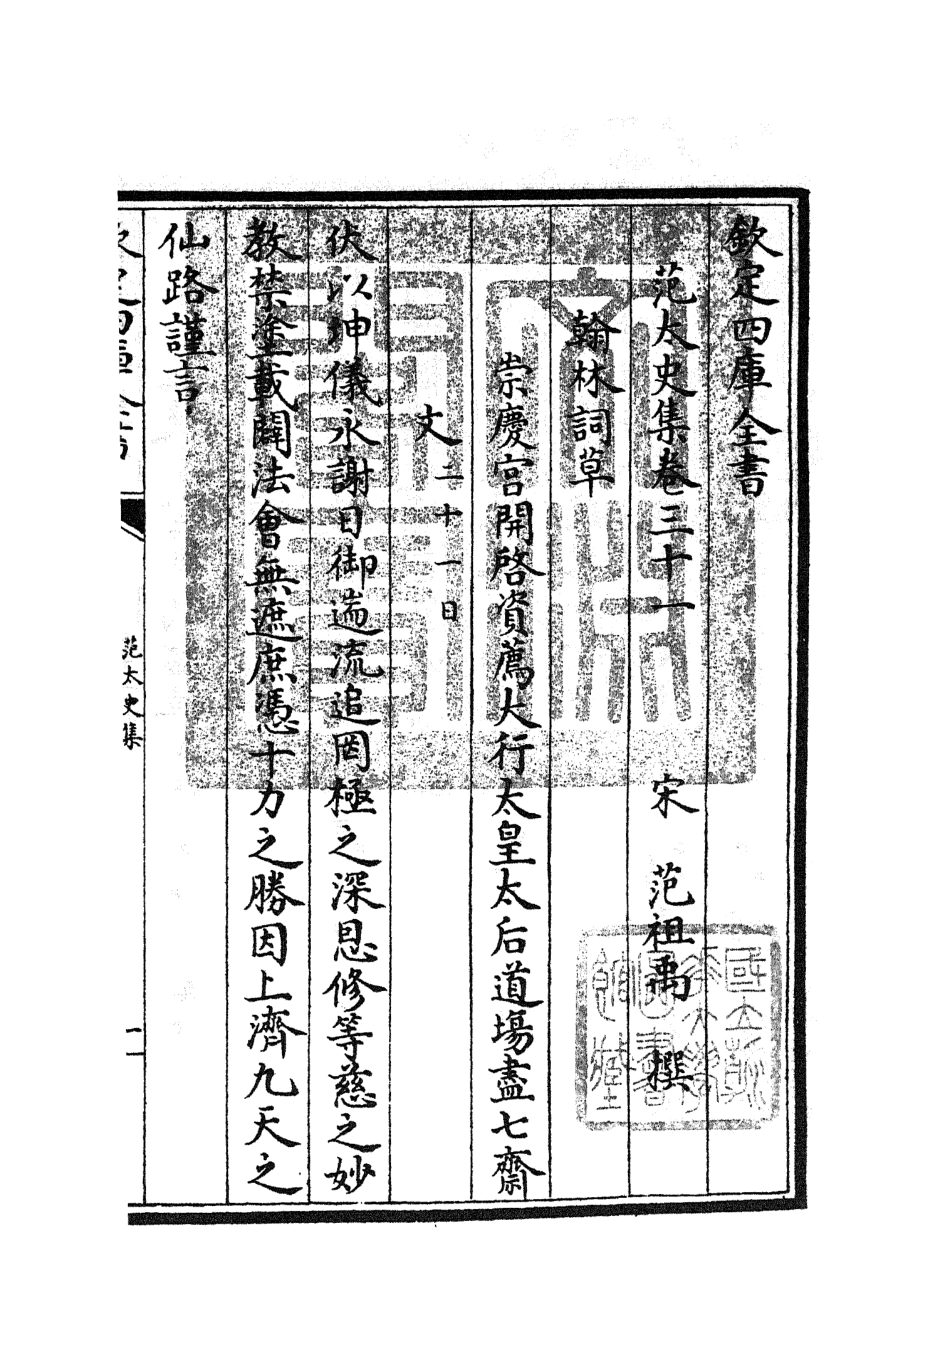 欽定四庫全書
范太史集卷三十一 宋 范祖禹 撰
翰林詞草
崇慶宮開啓資薦大行太皇太后道場盡七齋
文二十一日
伏以坤儀永謝日御遄流追罔極之深恩修等慈之妙
教禁塗載闢法會無遮庶憑十力之勝因上濟九天之
仙路謹言
范太史集
一